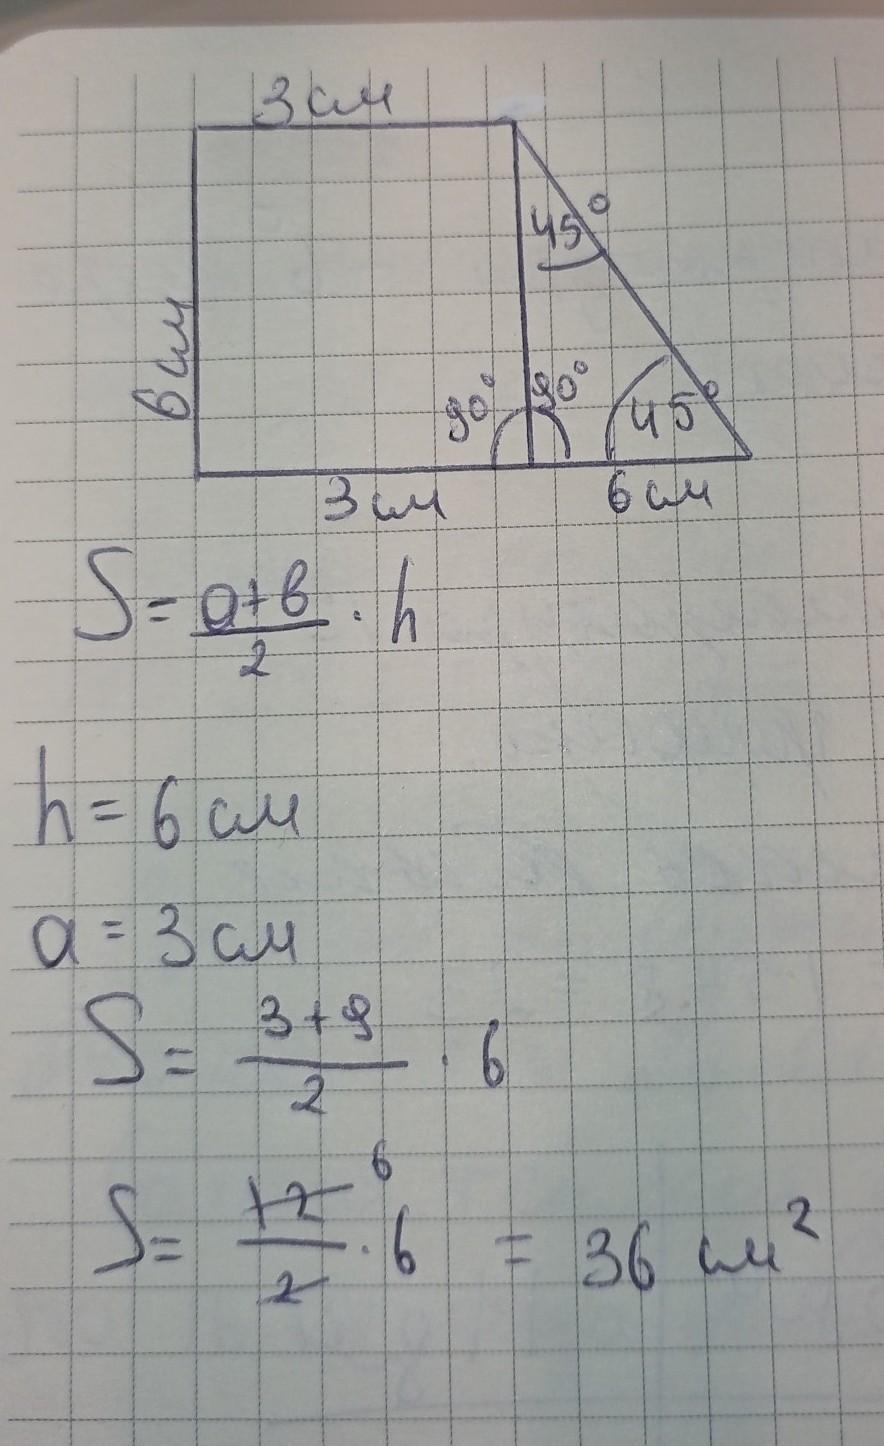 3 см
45°
6 см
90° 90° 45°
3 см 6 см
S = a+b/2 · h
h = 6 см
a = 3 см
S = 3+9/2 · 6
S = 12/2 6 · 6 = 36 см²